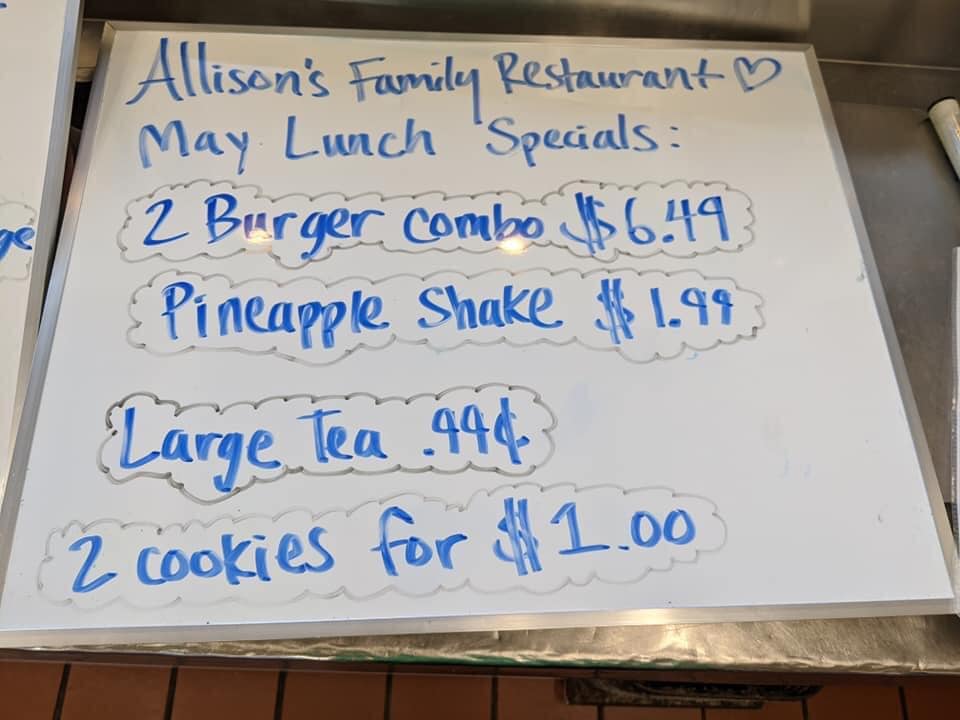 Allison's Family Restaurant ♡
May Lunch Specials:
2 Burger combo $6.49
Pineapple Shake $1.99
Large Tea .99¢
2 cookies for $1.00
ge